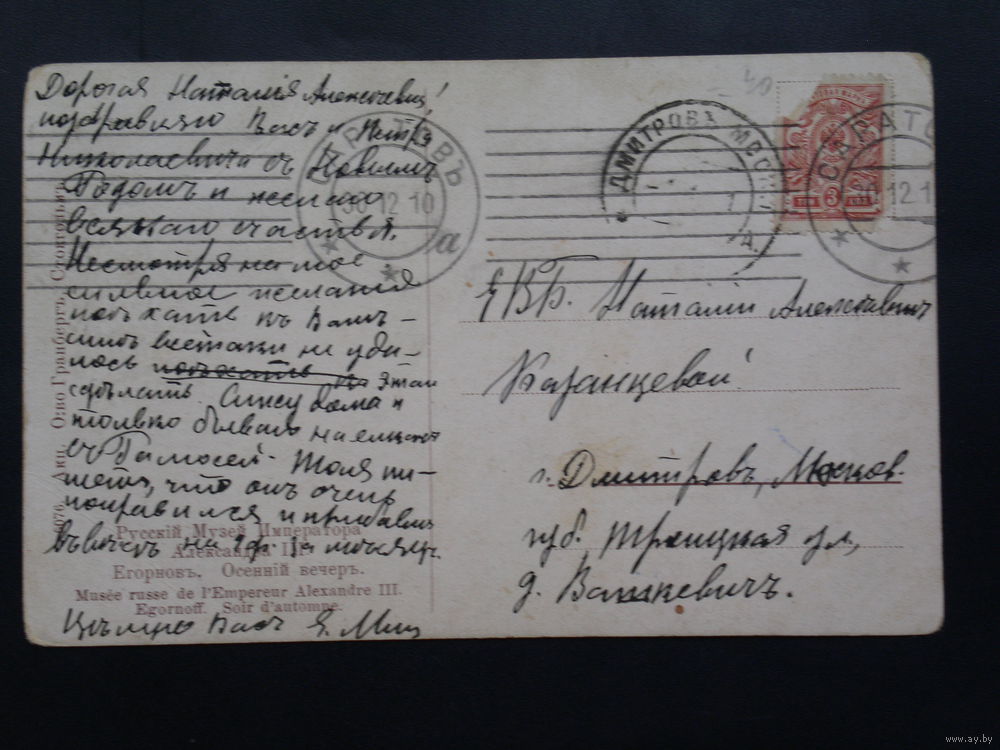 Дорогая Наталія Алексѣевна!
поздравляю Васъ и Петра
Николаевича съ Новымъ
Годомъ и желаю
всякаго счастья.
Несмотря на мое
сильное желаніе
поѣхать къ Вамъ
всетаки не уда-
лось поѣхать
сдѣлать. Сижу дома и
только бываю на
съ Толя пи-
шетъ, что онъ очень
поправился и прибавилъ
въ вѣсѣ на за мѣсяцъ.
Цѣлую Васъ Е.
Русскій Музей Императора
Александра III.
Егорновъ. Осенній вечеръ.
Musée russe de l'Empereur Alexandre III.
Egornoff. Soir d'automne.
Акц. О-во Гранбергъ, Стокгольмъ
САРАТОВЪ
30 12 10
а
ДМИТРОВЪ МОСК.
САРАТО
30 12 1
3
40
ЕВБ. Наталіи Алексѣевнѣ
Казанцевой
г. Дмитровъ, Москов.
губ. Троицкая ул,
д. Вашкевичъ.
www.ay.by